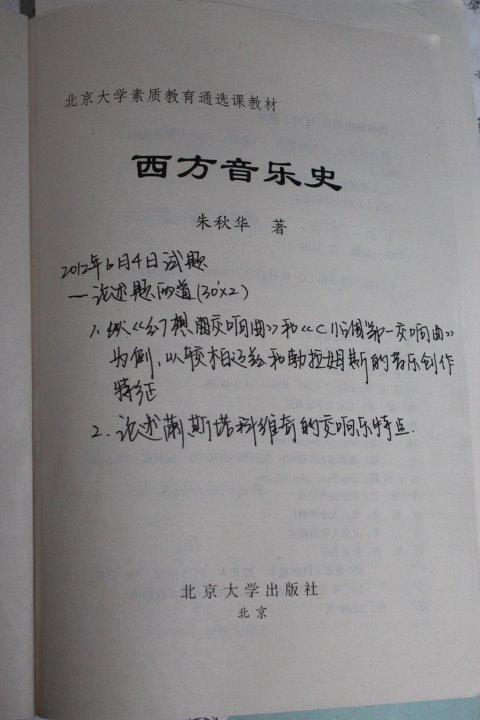 北京大学素质教育通选课教材
西方音乐史
朱秋华 著
2012年6月4日试题
一 论述题两道(30'×2)
1. 以《幻想曲交响曲》和《C小调第一交响曲》
为例，比较柏辽兹和勃拉姆斯的音乐创作
特征
2. 论述萧斯塔科维奇的交响乐特点.
北京大学出版社
北京